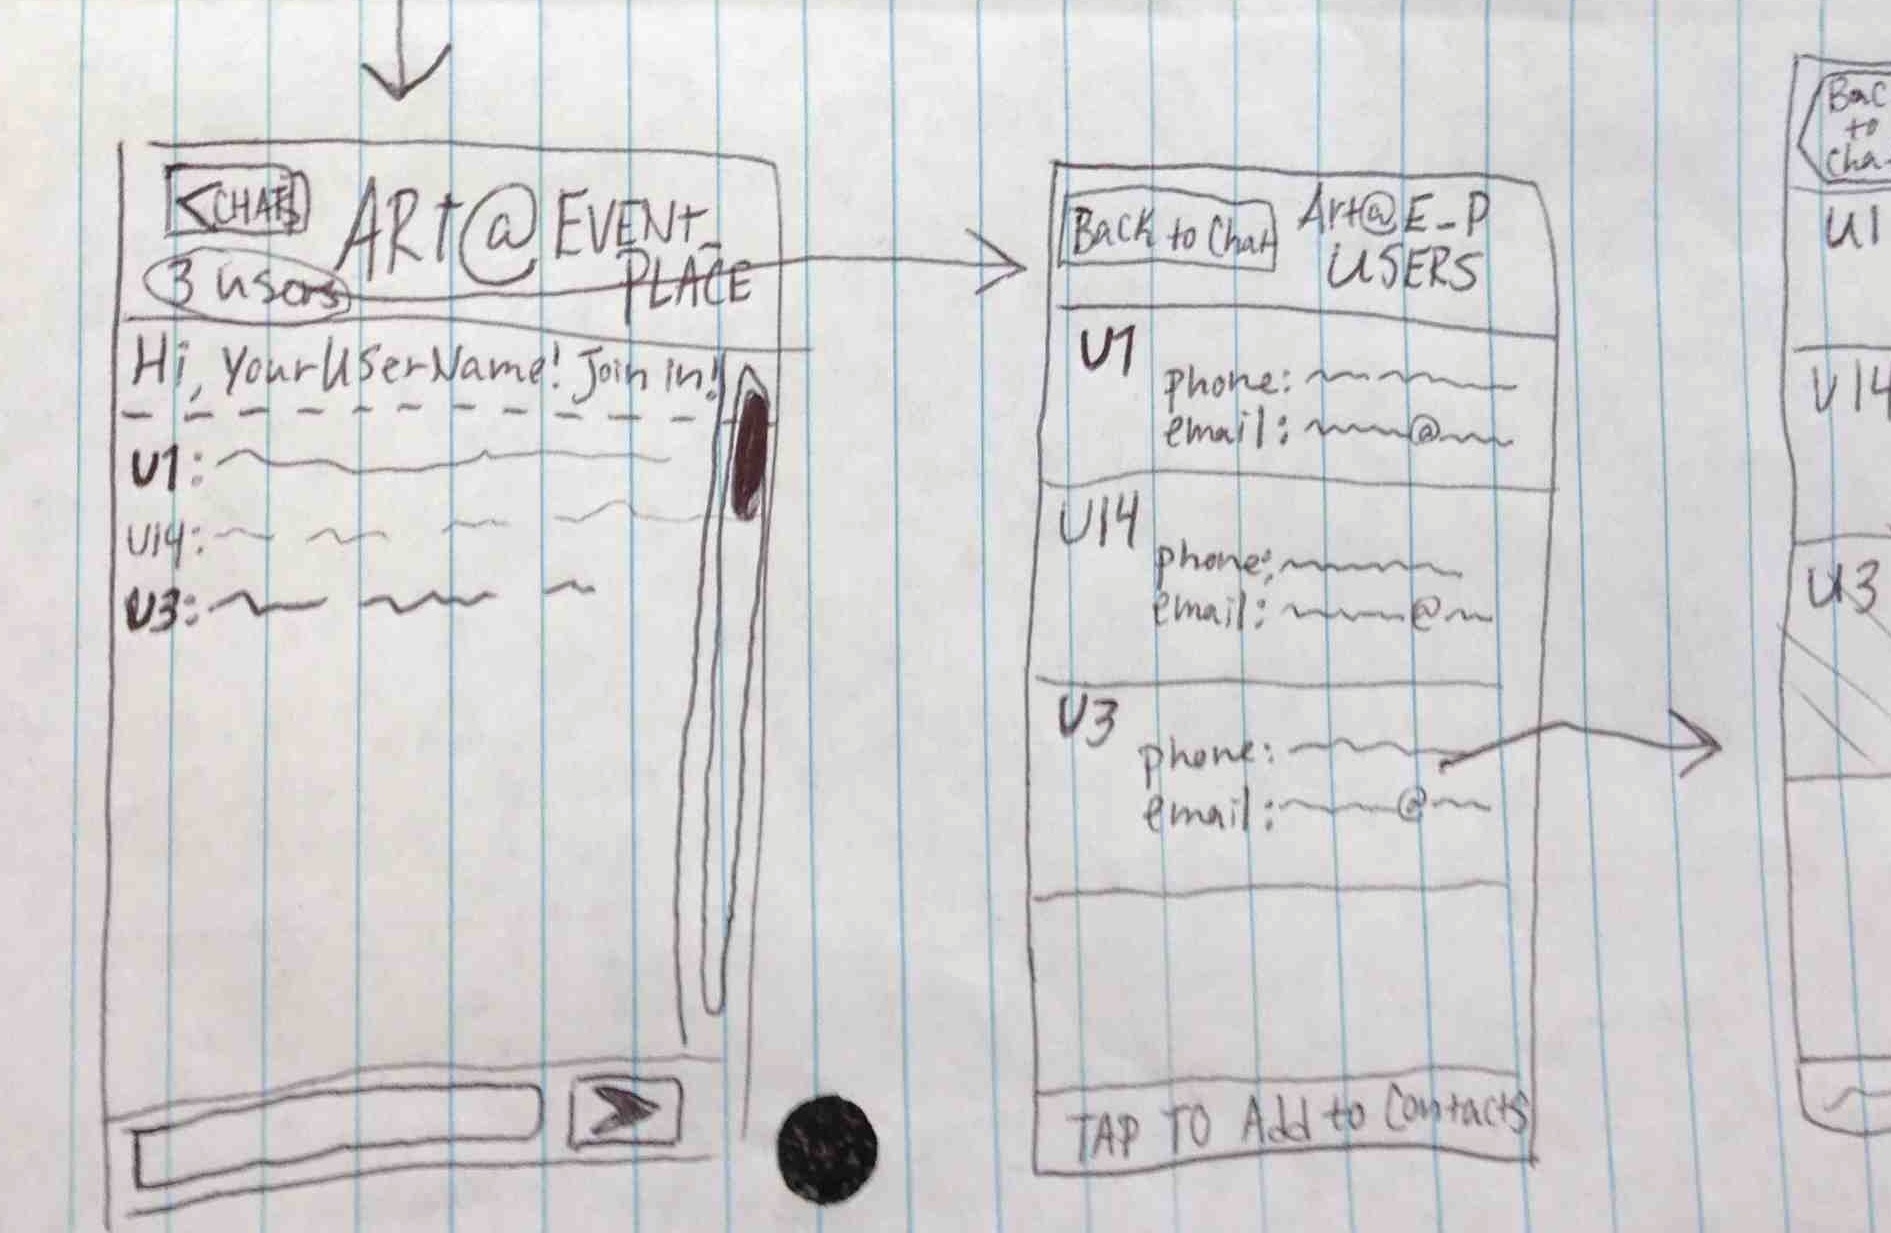 <CHATS
ARt@EVENt_
PLACE
3 users
Hi, YourUserName! Join in!
U1:
U14:
U3:
Back to Chat
Art@E_P
USERS
U1
phone:
email: @
U14
phone:
email: @
U3
phone:
email: @
TAP TO Add to Contacts
Bac
to
Cha
U1
U14
U3